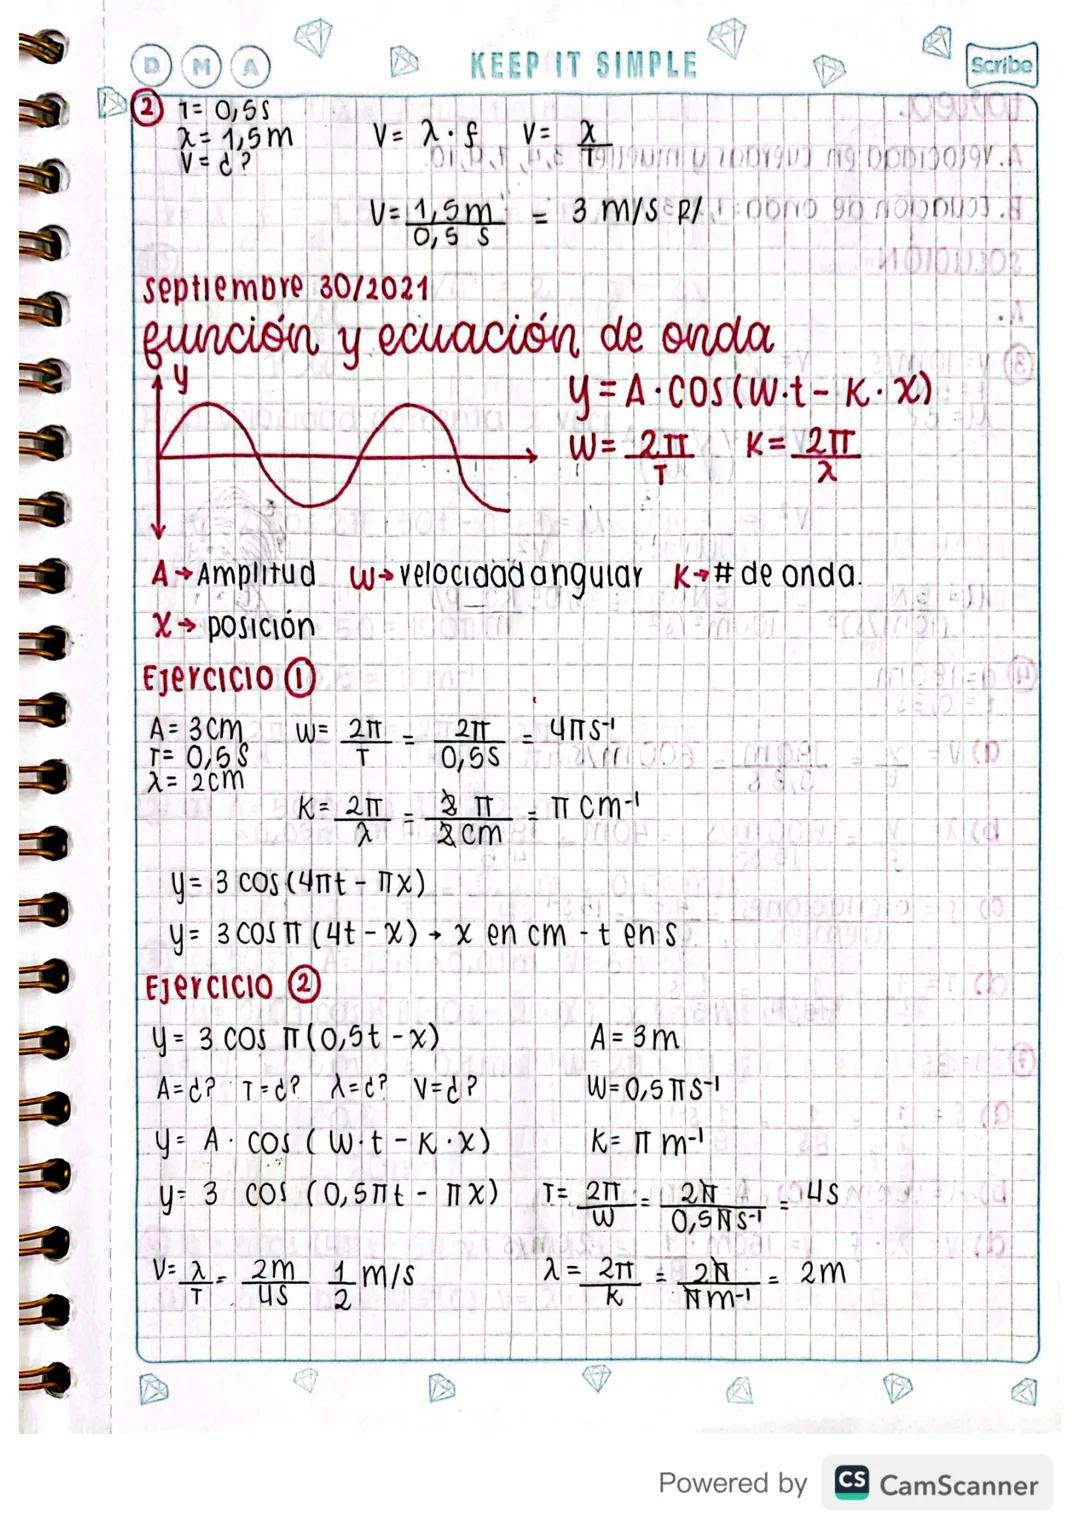 D M A KEEP IT SIMPLE Scribe
② T= 0,5s
λ= 1,5m V= λ·f V= λ/T
V= ¿?
V= 1,5m/0,5 s = 3 m/s R/
septiembre 30/2021
función y ecuación de onda
y
y = A·cos(w·t - K·x)
w= 2π/T K= 2π/λ
A→Amplitud w→velocidad angular K→# de onda.
x→ posición
Ejercicio ①
A= 3cm w= 2π/T = 2π/0,5s = 4πs⁻¹
T= 0,5s
λ= 2cm
K= 2π/λ = 2π/2cm = π cm⁻¹
y= 3 cos(4πt - πx)
y= 3 cos π (4t - x) → x en cm - t en s
Ejercicio ②
y= 3 cos π(0,5t - x) A= 3m
A=¿? T=¿? λ=¿? V=¿? w=0,5πs⁻¹
y= A· cos (w·t - K·x) K= π m⁻¹
y= 3 cos (0,5πt - πx) T= 2π/w = 2π/0,5πs⁻¹ = 4s
V= λ/T = 2m/4s 1/2 m/s λ= 2π/K = 2π/πm⁻¹ = 2m
Powered by CS CamScanner